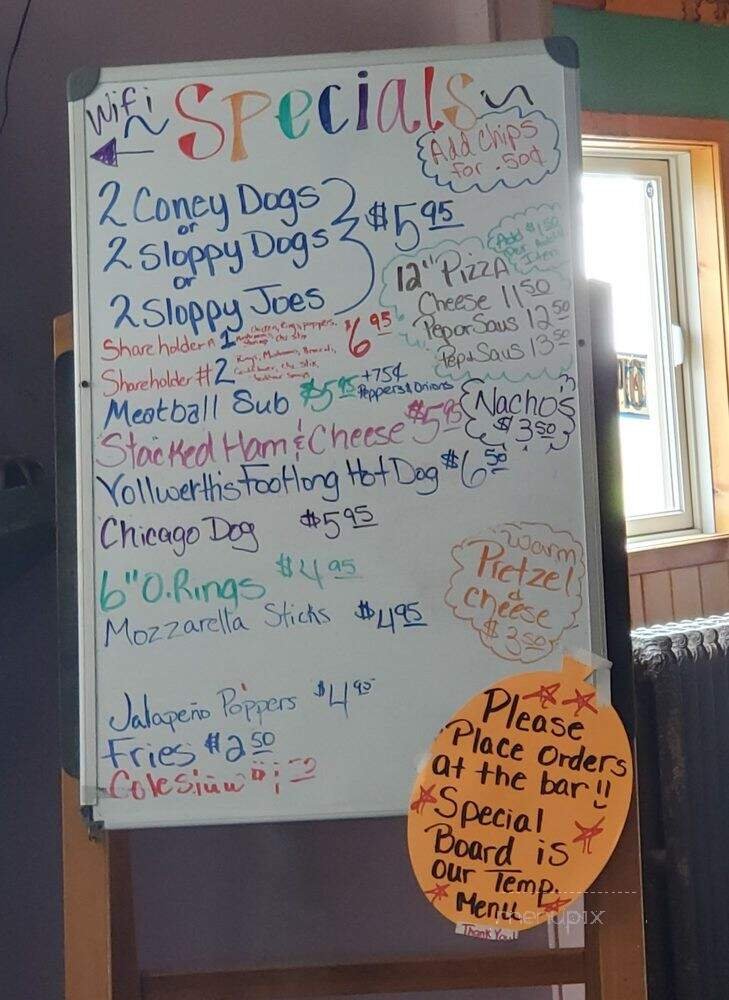 Wifi
Specials
Add Chips
for .50¢
2 Coney Dogs
or
2 Sloppy Dogs
or
2 Sloppy Joes
$5 95
Add $1.50
Item
12" Pizza
Cheese 11 50
Pep or Saus 12 50
Pep & Saus 13 50
Shareholder # 1
$6 95
Shareholder # 2
Meatball Sub $5 95 +75¢
Peppers & Onions
Nachos
$3 50
Stacked Ham & Cheese $5 95
Vollwerthis Footlong Hot Dog $6 50
Chicago Dog $5 95
6" O.Rings $4 95
Mozzarella Sticks $4 95
Warm
Pretzel
&
cheese
$3 50
Jalapeño Poppers $4 95
Fries $2 50
Please
Place orders
at the bar!!
Special
Board is
our Temp.
Menu
Thank You!
menupix